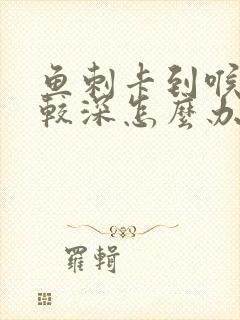 鱼刺卡到喉
较深怎麼办
羅輯